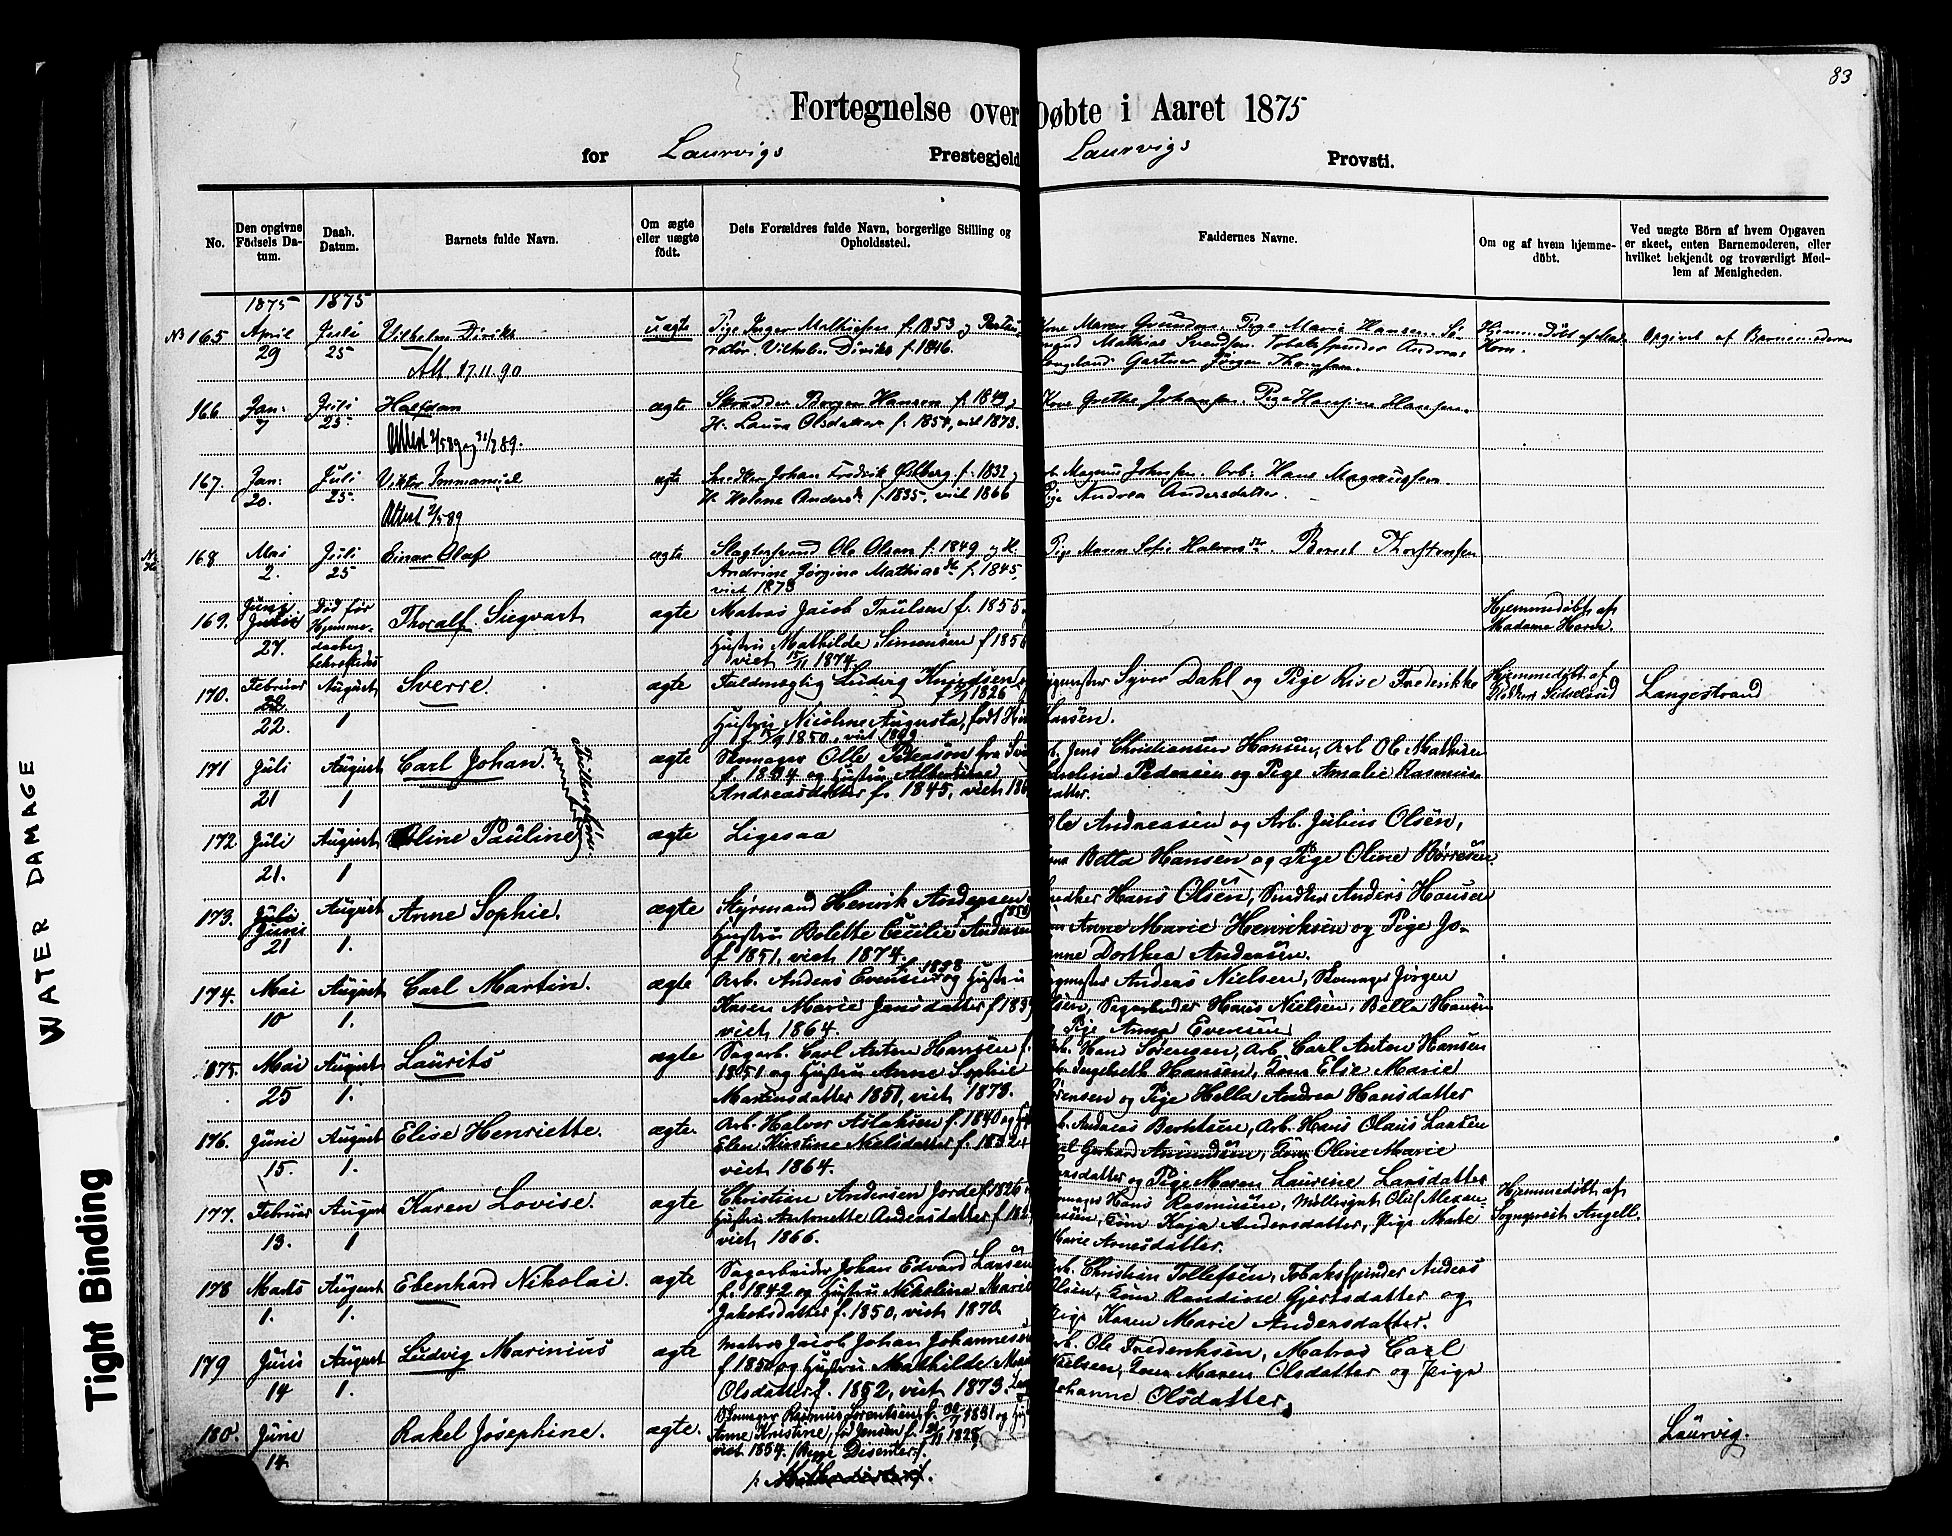 83
Fortegnelse over Døbte i Aaret 1875
for Laurvigs Prestegjeld Laurvigs Provsti.
No.
Den opgivne Födsels Datum.
Daab. Datum.
Barnets fulde Navn.
Om ægte eller uægte födt.
Dets Forældres fulde Navn, borgerlige Stilling og Opholdssted.
Faddernes Navne.
Om og af hvem hjemmedöbt.
Ved uægte Börn af hvem Opgaven er skeet, enten Barnemoderen, eller hvilket bekjendt og troværdigt Medlem af Menigheden.
1875 1875
No 165 April 29 Juli 25 Vilhelm Diriks uægte Pige Inger Mathisen f. 1853 og
Vilhelm Diriks f. 1846.
Kone Maren Pige Marie Hansen
Mathias Svendsen. Tobakspinder Andreas
Gartner Jörgen
Hjemmedöbt af Mad. Horn.
Opgivet af Barnemoderen
Att. 17.11.90
166 Jan: 7 Juli 25 Halfdan ægte Skrædder Borger Hansen f. 1849 og
H. Laura Olsdatter f. 1854, viet 1873.
Kone Grethe Johansen. Pige Hansine Hansen.
Attest 2/5 89 og
167. Jan: 20. Juli 25. Viktor Immanuel ægte Snedker Johan Fredrik f. 1832 og
H. Helene Andersdr f. 1835. viet 1866
Arb. Magnus Johnsen. Arb: Hans Magnussen
Pige Andrea Andersdatter
Attest 2/5 89
168 Mai 2. Juli 25 Einar Olaf ægte Slagtersvend Ole Olsen f. 1849 og H.
Andrine Jörgine Mathiasdr f. 1845,
viet 1873
Pige Maren Sofie Halvorsdr. Bernt Thorstensen
169. Juni 27. Död før Hjemmedaabens bekræftelse Thoralf Siegvart ægte Matros Jacob Trulsen f. 1855,
Hustru Mathilde Simonsen f 1856
viet 15/11 1874.
Hjemmedöbt af
Madame Horn.
170. Februar 22. August 1 Sverre. ægte Fuldmægtig Ludvig Knudsen
1826
Hustru Nicoline Augusta, født
1850. viet 1869
Syver Dahl og Pige Rise Frederikke
Hansen.
Hjemmedöbt af
Klokker
Langestrand
171 Juli 21 August 1 Carl Johan. ægte Skomager Olle Pedersön fra
f. 1834 og Hustru Albertine
Andreasdatter f. 1845, viet
Tvillingsödskende
Arb. Jens Christiansen Hansen, Arb Ole Mathisen
Karoline Pedersen og Pige Amalie Rasmusdatter.
172 Juli 21. August 1 Oline Pauline ægte Ligesaa
Ole Andreasen og Arb. Julius Olsen,
Kone Betta Hansen og Pige Oline Börresen
173. Juni 21 August 1. Anne Sophie. ægte Styrmand Henrik Andersen
Hustru Bolette Cecilie Andersen
f 1851, viet 1874.
Snedker Hans Olsen, Snedker Anders Hansen
Anne Marie Henriksen og Pige Johanne
Dorthea Andersen.
174. Mai 10 August 1. Carl Martin. ægte Arb. Anders Evensen og Hustru
Karen Marie Jensdatter f 1839
viet, 1864.
Anders Nielsen, Skomager Jörgen
Olsen, Sagarbeider Hans Nielsen, Bella Hansen
Pige Anna Evensen
1875. Mai 25 August 1. Laurits ægte Sagarb. Carl Anton Hansen f.
1851 og Hustru Anne Sophie
Martinsdatter 1851, viet 1873.
Arb. Hans Sørensen, Arb Carl Anton Hansen
Ingebreth Hansen, Kone Elise Marie
Sørensen og Pige Hella Andrea Hansdatter
176. Juni 15. August 1. Elise Henriette. ægte. Arb. Halvor Aslaksen f. 1840 og
Elen Kirstine Nielsdatter f. 1832
viet, 1864.
Arb. Andreas Berntsen, Arb. Hans Olaus Larsen
Gerhard Amundsen, Kone Oline Marie
datter og Pige Maren Laurine Larsdatter
177. Februar 13. August 1 Karen Lovise. ægte Christian Andersen Jorde f. 1826
Hustru Antonette Andersdatter f
viet, 1866.
Skomager Hans Rasmussen, Möllersvend Oluf
Kone Kaja Andersdatter, Pige Mathe
Marie Arnesdatter.
Hjemmedöbt af
Sognepræst Angell.
178 Marts 1. August 1. Ebenhard Nikolai. ægte Sagarbeider Johan Edvard Larsen
f. 1842 og Hustru Nikoline Marie
Jakobsdatter f. 1850, viet 1870
Arb. Christian Tollefsen, Tobakspinder Anders
Olsen, Kone Randine Gjertsdatter og
Pige Karen Marie Andersdatter.
179 Juni 14 August 1. Ludvig Marinius ægte Matros Jacob Johan Johannesen
f. 1850 og Hustru Mathilde
Olsdatter f. 1852, viet 1873.
Arb. Ole Frederiksen, Matros Carl
Nielsen, Kone Maren Olsdatter og Pige
Johanne Olsdatter,
180. Juni 14. Rakel Josephine. ægte. Skomager Rasmus Lorentsen f. 1831 og
Anne Kristine, fød Jensen f. 1828
viet 1854. (Begge Disenter.)
Laurvig
WATER DAMAGE
Tight Binding